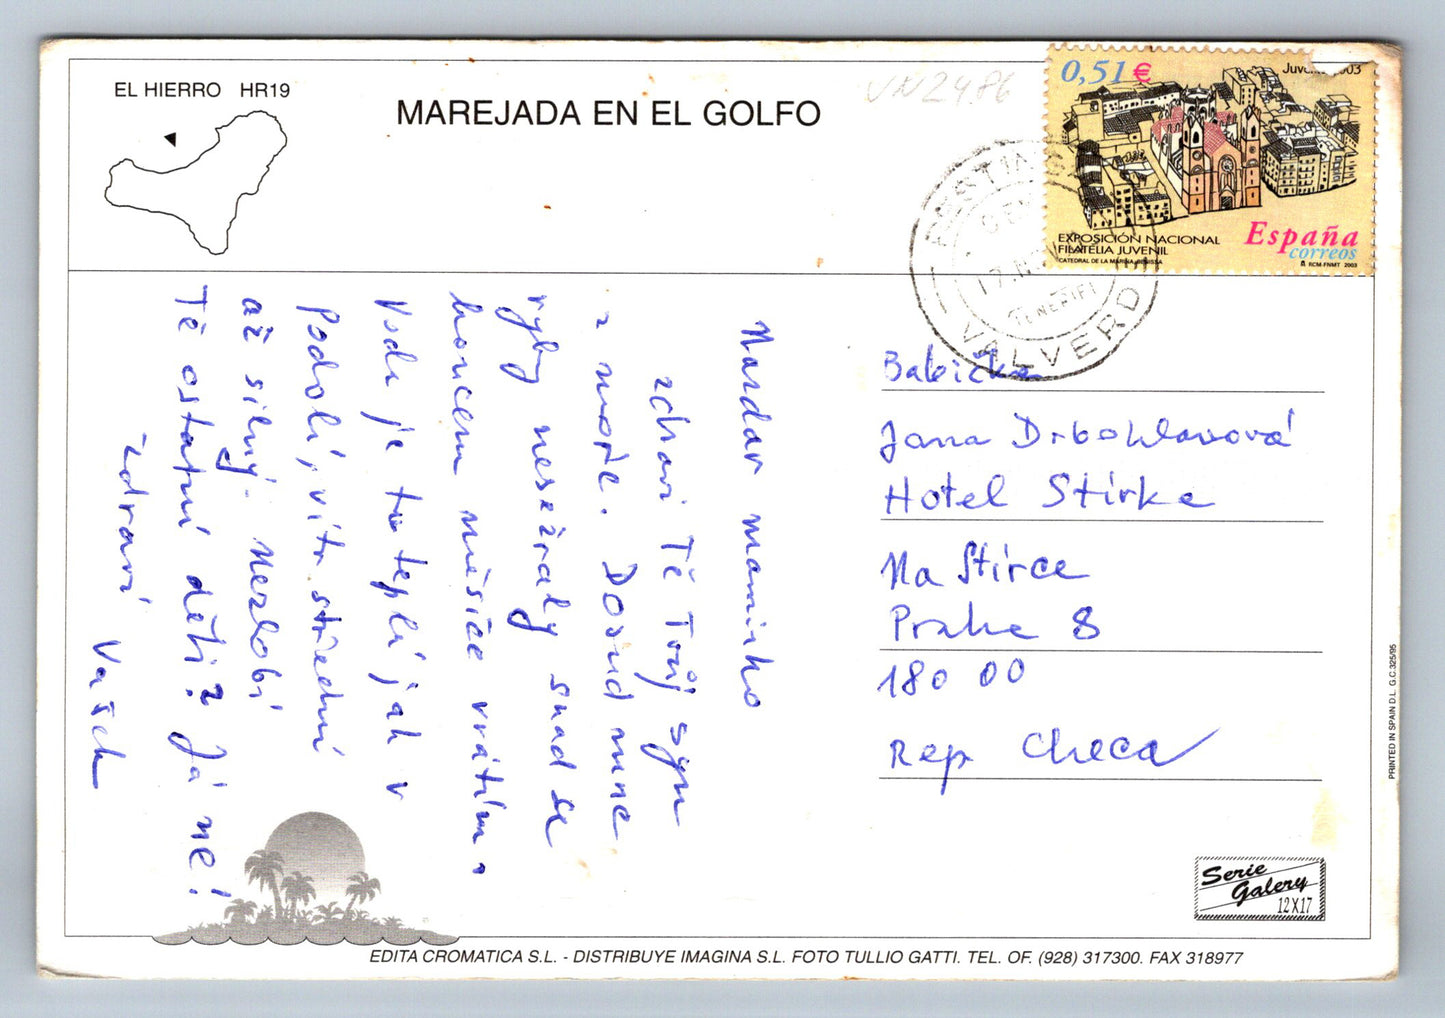 EL HIERRO HR19
MAREJADA EN EL GOLFO
VN2486
0,51 €
EXPOSICIÓN NACIONAL
FILATELIA JUVENIL
CATEDRAL DE LA MARINA. BENISSA
España
correos
RCM-FNMT 2003
TENERIFE
VALVERDE
Nazdar maminko
zdraví Tě Tvůj syn
z moře. Dosud mne
ryby nesežraly snad se
koncem měsíce vrátím.
Vode je tu teplá jak v
Podolí, vítr střední
až silný. Nezlobí
Tě ostatní děti? Já ne!
zdraví Vašek
Babička
Jana Drbohlavová
Hotel Stírka
Na Stírce
Praha 8
180 00
Rep. Checa
PRINTED IN SPAIN D.L. G.C.325/95
Serie
Galery
12X17
EDITA CROMATICA S.L. - DISTRIBUYE IMAGINA S.L. FOTO TULLIO GATTI. TEL. OF. (928) 317300. FAX 318977